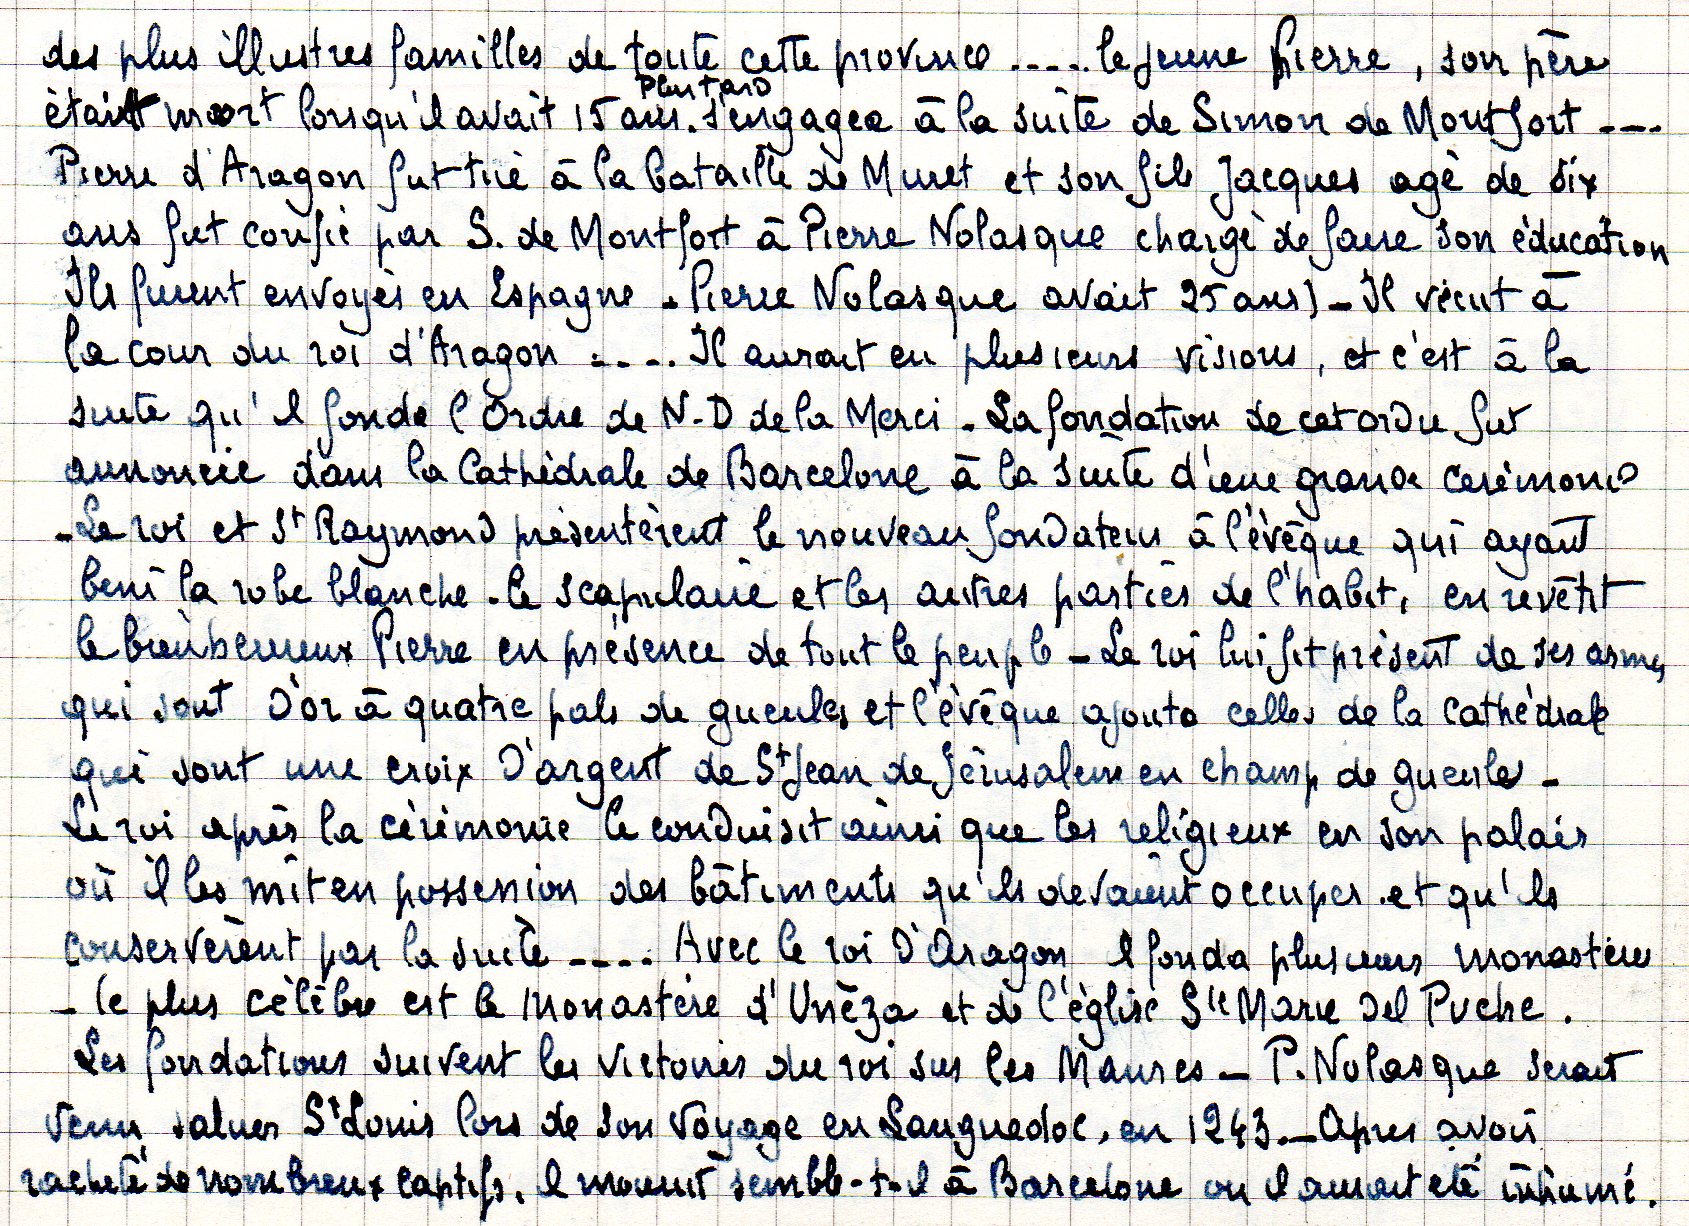 des plus illustres familles de toute cette province ..... le jeune Pierre, son père
plus tard
était mort lorsqu'il avait 15 ans. s'engagea à la suite de Simon de Montfort ----
Pierre d'Aragon fut tué à la bataille de Muret et son fils Jacques agé de six
ans fut confié par S. de Montfort à Pierre Nolasque chargé de faire son éducation
Ils furent envoyés en Espagne - Pierre Nolasque avait 25 ans) - Il vécut à
la cour du roi d'Aragon ..... Il aurait eu plusieurs visions, et c'est à la
suite qu'il fonde l'Ordre de N-D de la Merci - La fondation de cet ordre fut
annoncée dans la Cathédrale de Barcelone à la suite d'une grande cérémonie
- Le roi et St Raymond présentèrent le nouveau fondateur à l'évêque qui ayant
beni la robe blanche - le scapulaire et les autres parties de l'habit, en revêtit
le bienheureux Pierre en présence de tout le peuple - Le roi lui fit présent de ses armes
qui sont d'or à quatre pals de gueules et l'évêque ajouta celles de la cathédrale
qui sont une croix d'argent de St Jean de Jérusalem en champ de gueules -
Le roi après la cérémonie le conduisit ainsi que les religieux en son palais
où il les mit en possession des bâtiments qu'ils devaient occuper et qu'ils
conservèrent par la suite ---- Avec le roi d'Aragon il fonda plusieurs monastères
- le plus célèbre est le monastère d'Unéza et de l'église Ste Marie del Puche.
Les fondations suivent les victoires du roi sur les Maures - P. Nolasque serait
venu saluer St Louis lors de son voyage en Languedoc, en 1243. - Apres avoir
racheté de nombreux captifs, il mourut semble-t-il à Barcelone ou il aurait été inhumé.